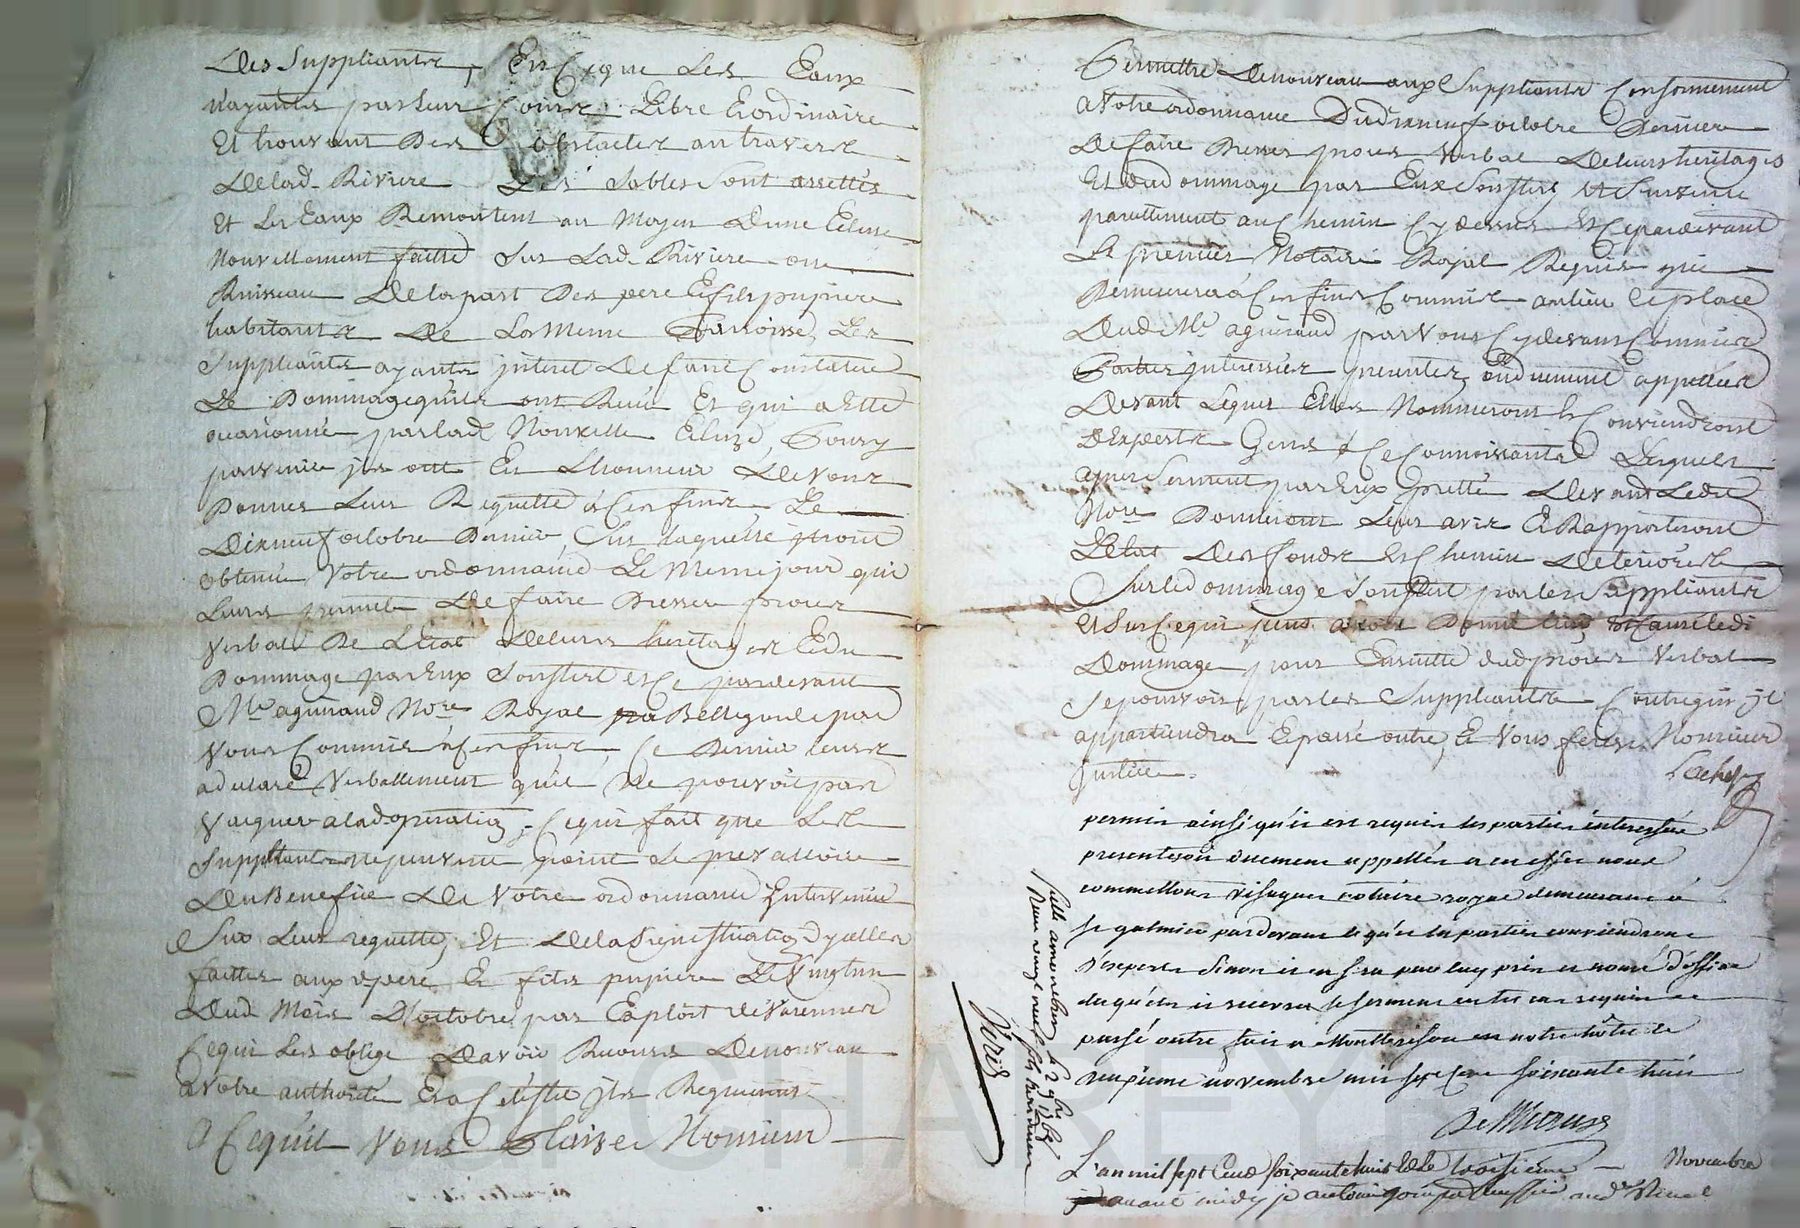 Des Suppliants, En Ce que Les Eaux
n'ayants pas Leur Cours Libre Et ordinaire
Et trouvant Des obstacles au travers
De lad. Riviere Les Sables Sont arrettés
Et Les Eaux Remontent au Moyen D'une Ecluse
Nouvellement faitte Sur Lad. Riviere ou
Ruisseau De la part Des pere Et fils pupiere
habitants De La Meme Parroisse, Les
Suppliants ayants jnteret De faire Constater
Le Dommage qu'ils ont Et qui a Etté
ocasionné par lad. Nouvelle Ecluze, Pour y
parvenir jls ont Eu L'honneur De vous
Donner Leur Requette á Ces fins Le
Dixneuf octobre Dernier Sur laquelle jls ont
obtenu Votre ordonnance Le Meme jour qui
Leurs permet De faire Dresser proces
Verbal De L'Etat De leurs heritages Et Du
Dommage par Eux Souffert et Ce pardevant
Me aguiraud Nore Royal a Bellegarde par
Vous Commis á Ces fins, Ce Dernier leurs
a declaré Verballement qu'il Ne pouvoit pas
Vacquer a lad. operation, Ce qui fait que Les
Suppliants ne peuvent point Se prevalloir
Du Benefice De Votre ordonnance Intervenue
Sur Leur requette, Et De la Signiffication D'ycelles
faittes aux d. pere Et fils pupiere Le Vingt un
Dud. Mois D'octobre par Exploit de Varennes
Ce qui Les oblige D'avoir Recours De nouveau
a Votre authorité Et a Cet effet jls Requierent
A Ce qu'il Vous Plaise Monsieur
Permettre De nouveau aux Suppliants Conformement
a Votre ordonnance Dud. dixneuf octobre Dernier
De faire Dresser proces Verbal De leurs heritages
Et Dud. dommage par Eux Souffert Et Survenu
pareillement au Chemin Cy dessus Et Ce pardevant
Le premier Notaire Royal Requis qui
Demeurera á Ces fins Commis au lieu Et place
Dud. Me aguiraud par Vous Cy devant Commis
Parties jnteressées presentes, ou duement appellées
Devant Lequel Elles Nommeront Et Conviendront
D'Experts Gens á Ce Connoissants Lesquels
apres Serment par Eux pretté Devant Ledit
Nore Donneront Leur avis Et Rapporteront
L'Etat Des fonds Et Chemin Deteriorés
Sur Le dommage Souffert par les Suppliants
Et Sur Ce qui peut avoir Donné lieu Et Cause led.
Dommage pour Ensuitte dud. proces Verbal
Se pourvoir par les Suppliants Contre qui jl
appartiendra Et passé outre, Et Vous ferés Monsieur
Justice.
permis ainsi qu'il est requis les parties interessées
presentes ou duement appellées a cet effet nous
commettons notaire royal demeurant á
St galmier pardevant lequel les parties conviendront
d'experts Sinon il en sera par luy pris et nommé d'office
desquels il recevra le serment en tel cas requis et
passé outre, fait a Montbrison en notre hôtel le
deuxieme novembre mil sept cent soixante huit
L'an mil sept Cent soixante huit Et Le troisieme Novembre
avant midy je